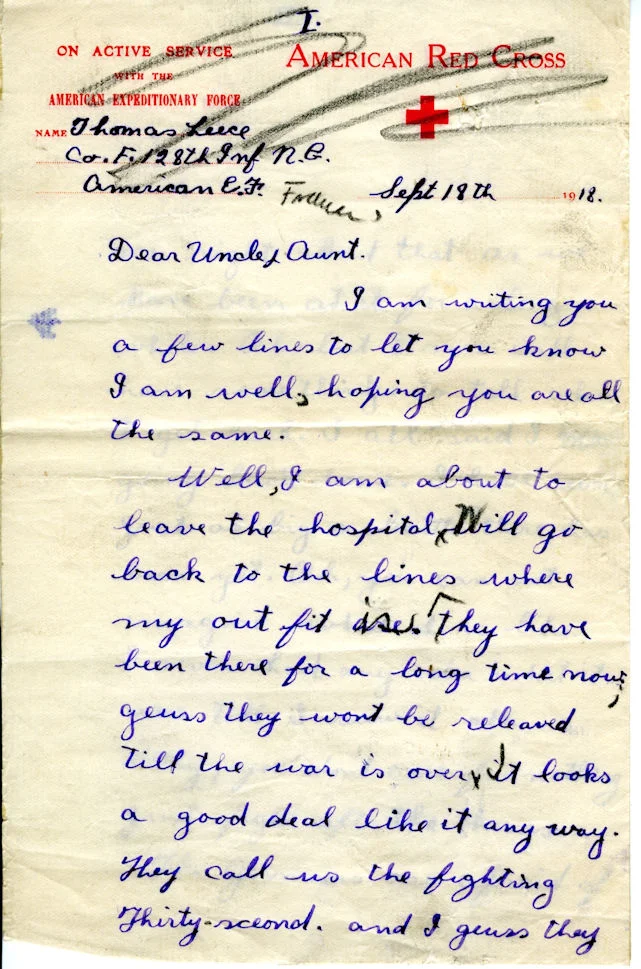 I.
ON ACTIVE SERVICE
WITH THE
AMERICAN EXPEDITIONARY FORCE
AMERICAN RED CROSS
NAME Thomas Leece
Co. F. 128th Inf N.G.
American E.F. France,
Sept 18th 1918.
Dear Uncle, Aunt.
I am writing you
a few lines to let you know
I am well, hoping you are all
the same.
Well, I am about to
leave the hospital, Will go
back to the lines where
my out fit is. They have
been there for a long time now;
geuss they wont be releaved
till the war is over, It looks
a good deal like it any way.
They call us the fighting
Thirty-second. and I geuss they